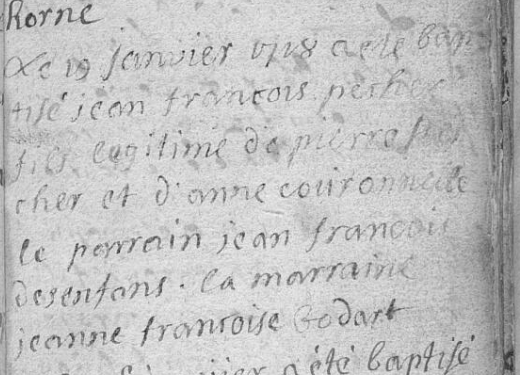 horne
Le 19 janvier 1718 a eté bap
tisé jean francois pescher
fils legitime de pierre pes
cher et d'anne couronnelle
le parrain jean francois
desenfans. la marraine
jeanne francoise Godart
janvier a été baptisé